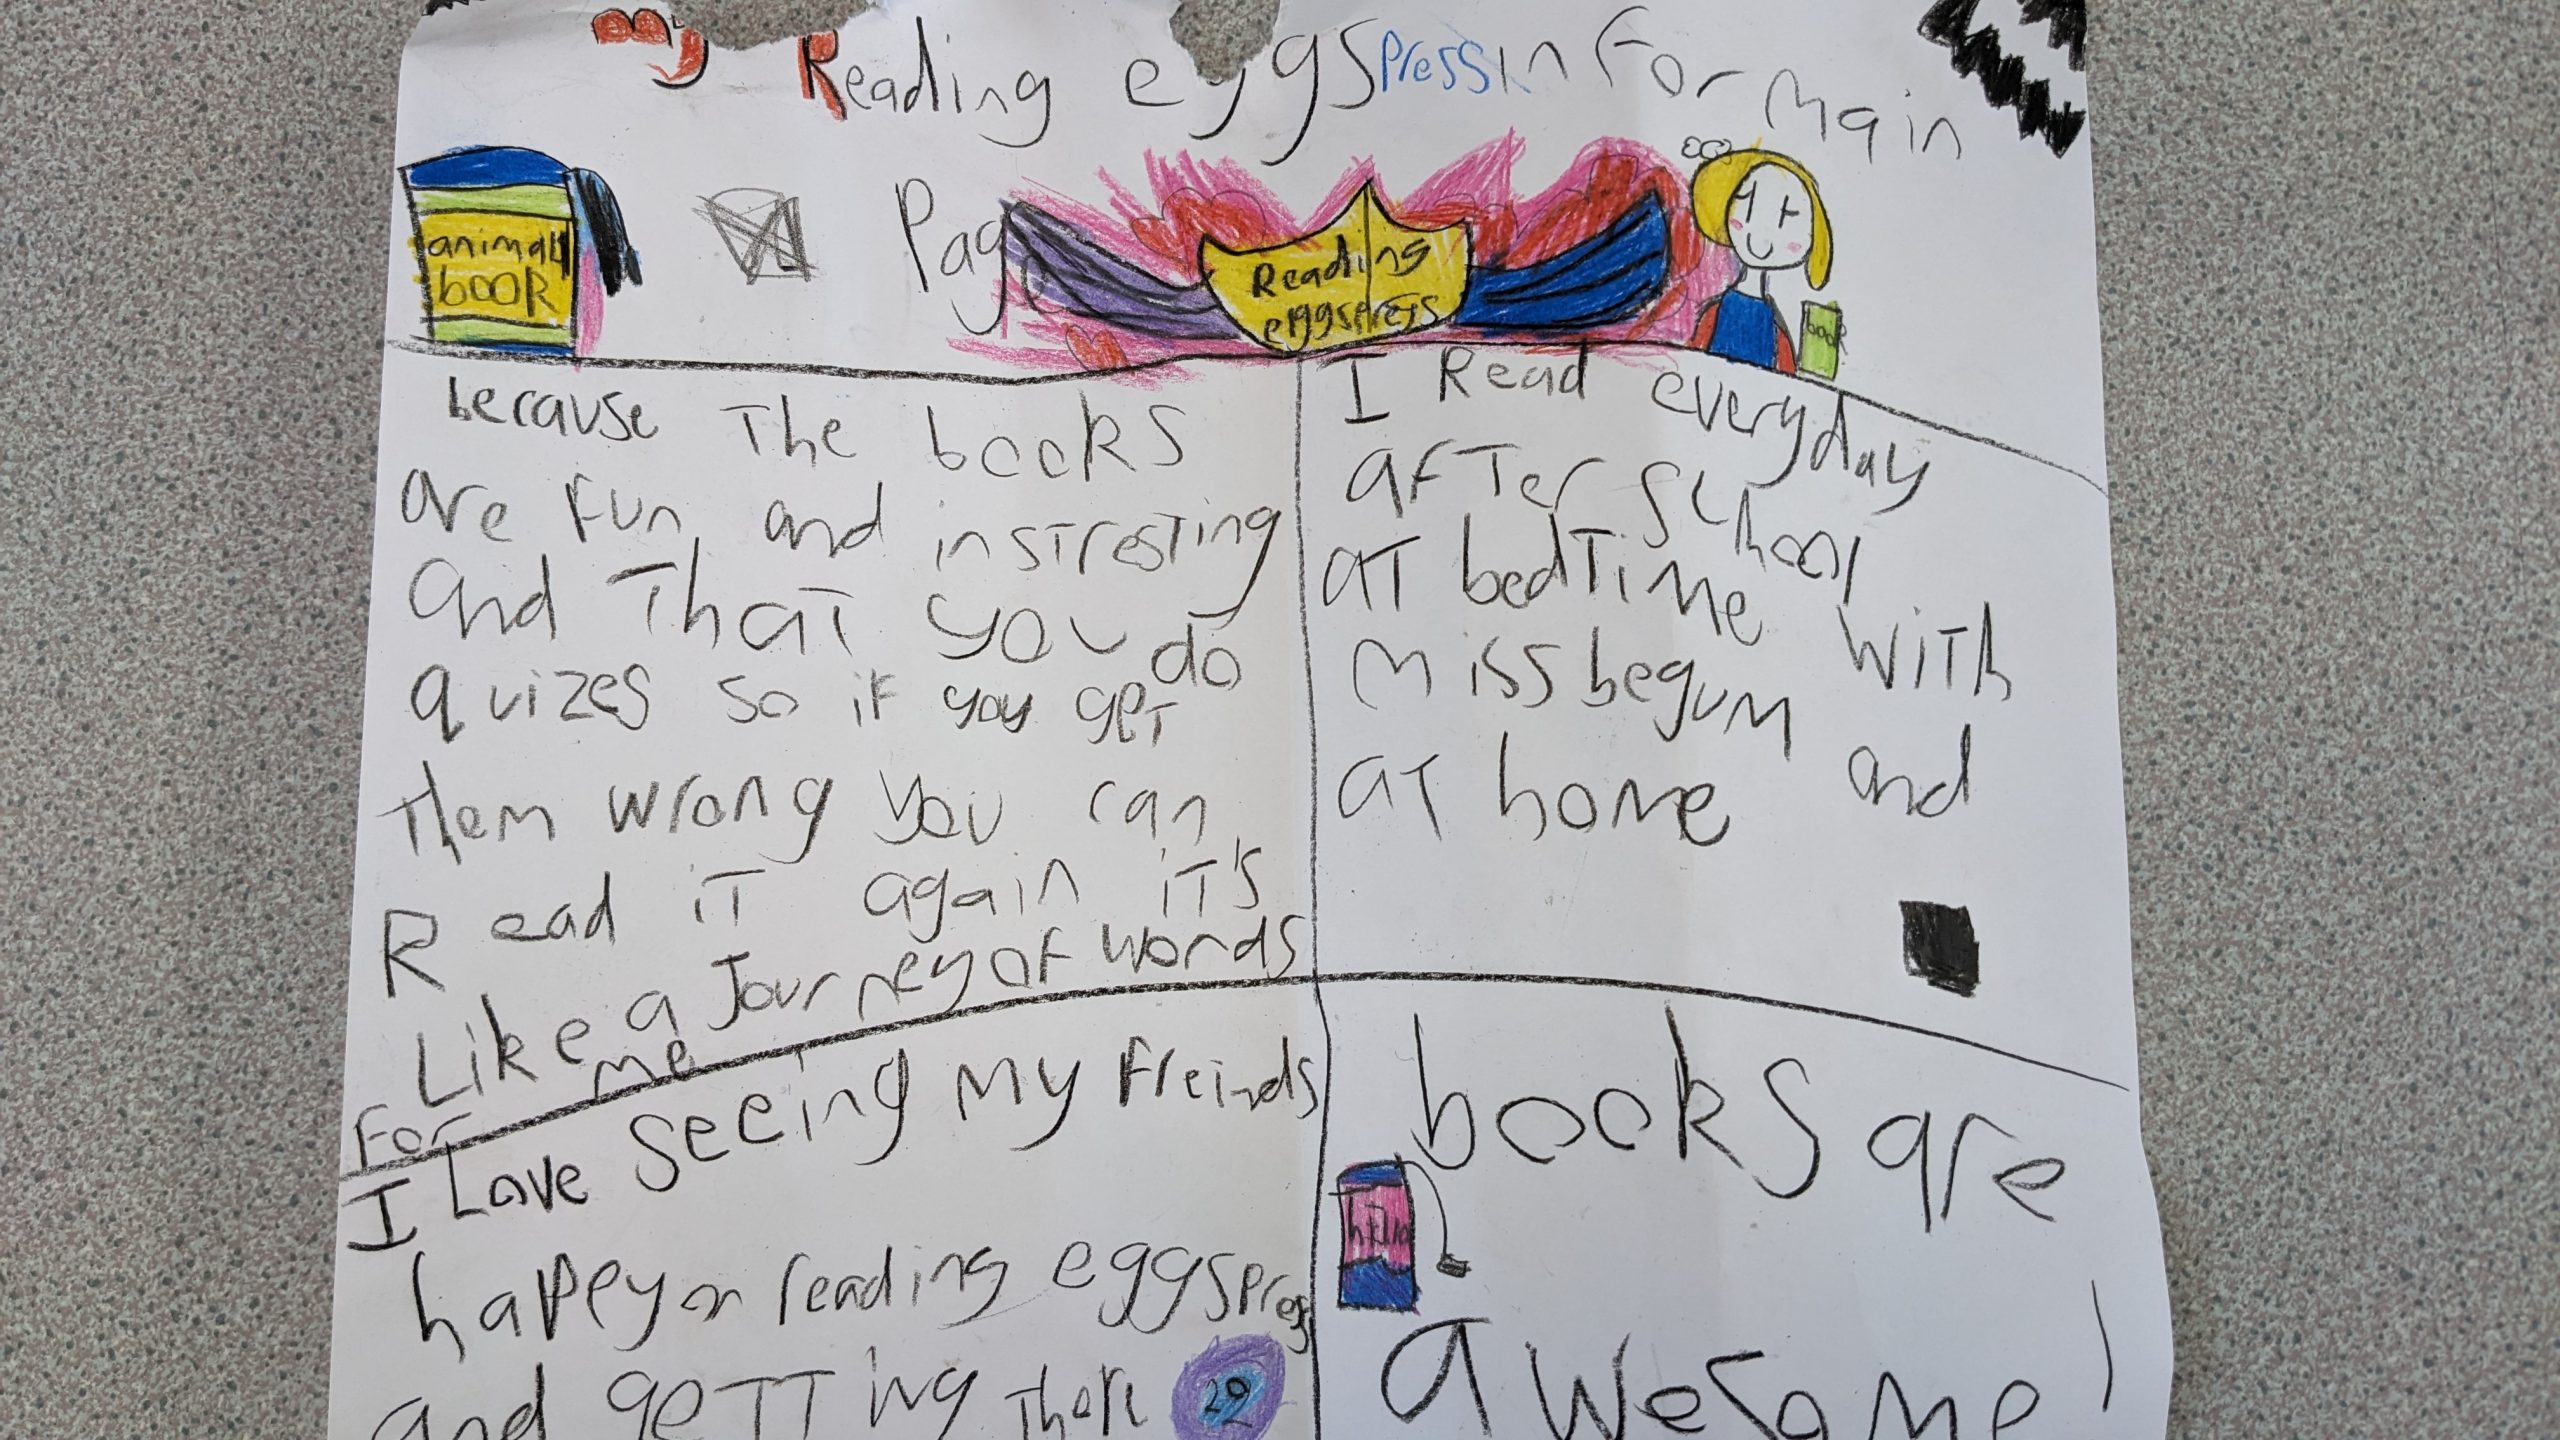 my Reading eggspress in for main
Page
animal
book
Reading
eggspress
book
because The books
are fun and instresting
and That you do
quizes so if you get
Them wrong you can
Read it again it's
Like a Journey of words
For me
I Read everyday
after school
at bedTime with
miss begum
at home and
I Love seeing my freinds
happey on reading eggspress
and geTTing There
29
books are
awesome!